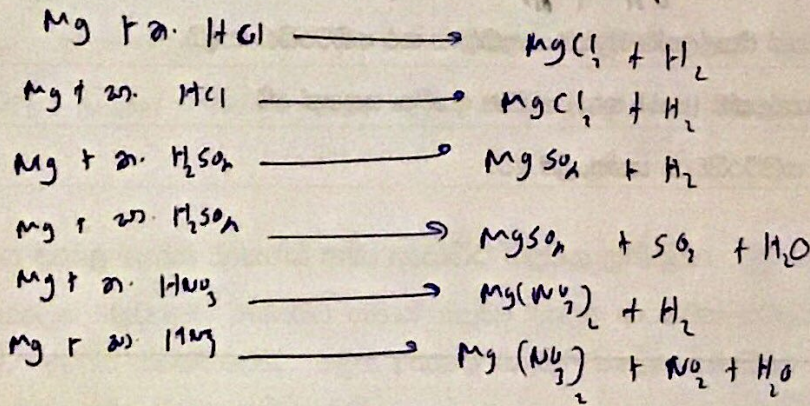 Mg + ත. HCl → MgCl₂ + H₂
Mg + සා. HCl → MgCl₂ + H₂
Mg + ත. H₂SO₄ → MgSO₄ + H₂
Mg + සා. H₂SO₄ → MgSO₄ + SO₂ + H₂O
Mg + ත. HNO₃ → Mg(NO₃)₂ + H₂
Mg + සා. HNO₃ → Mg(NO₃)₂ + NO₂ + H₂O